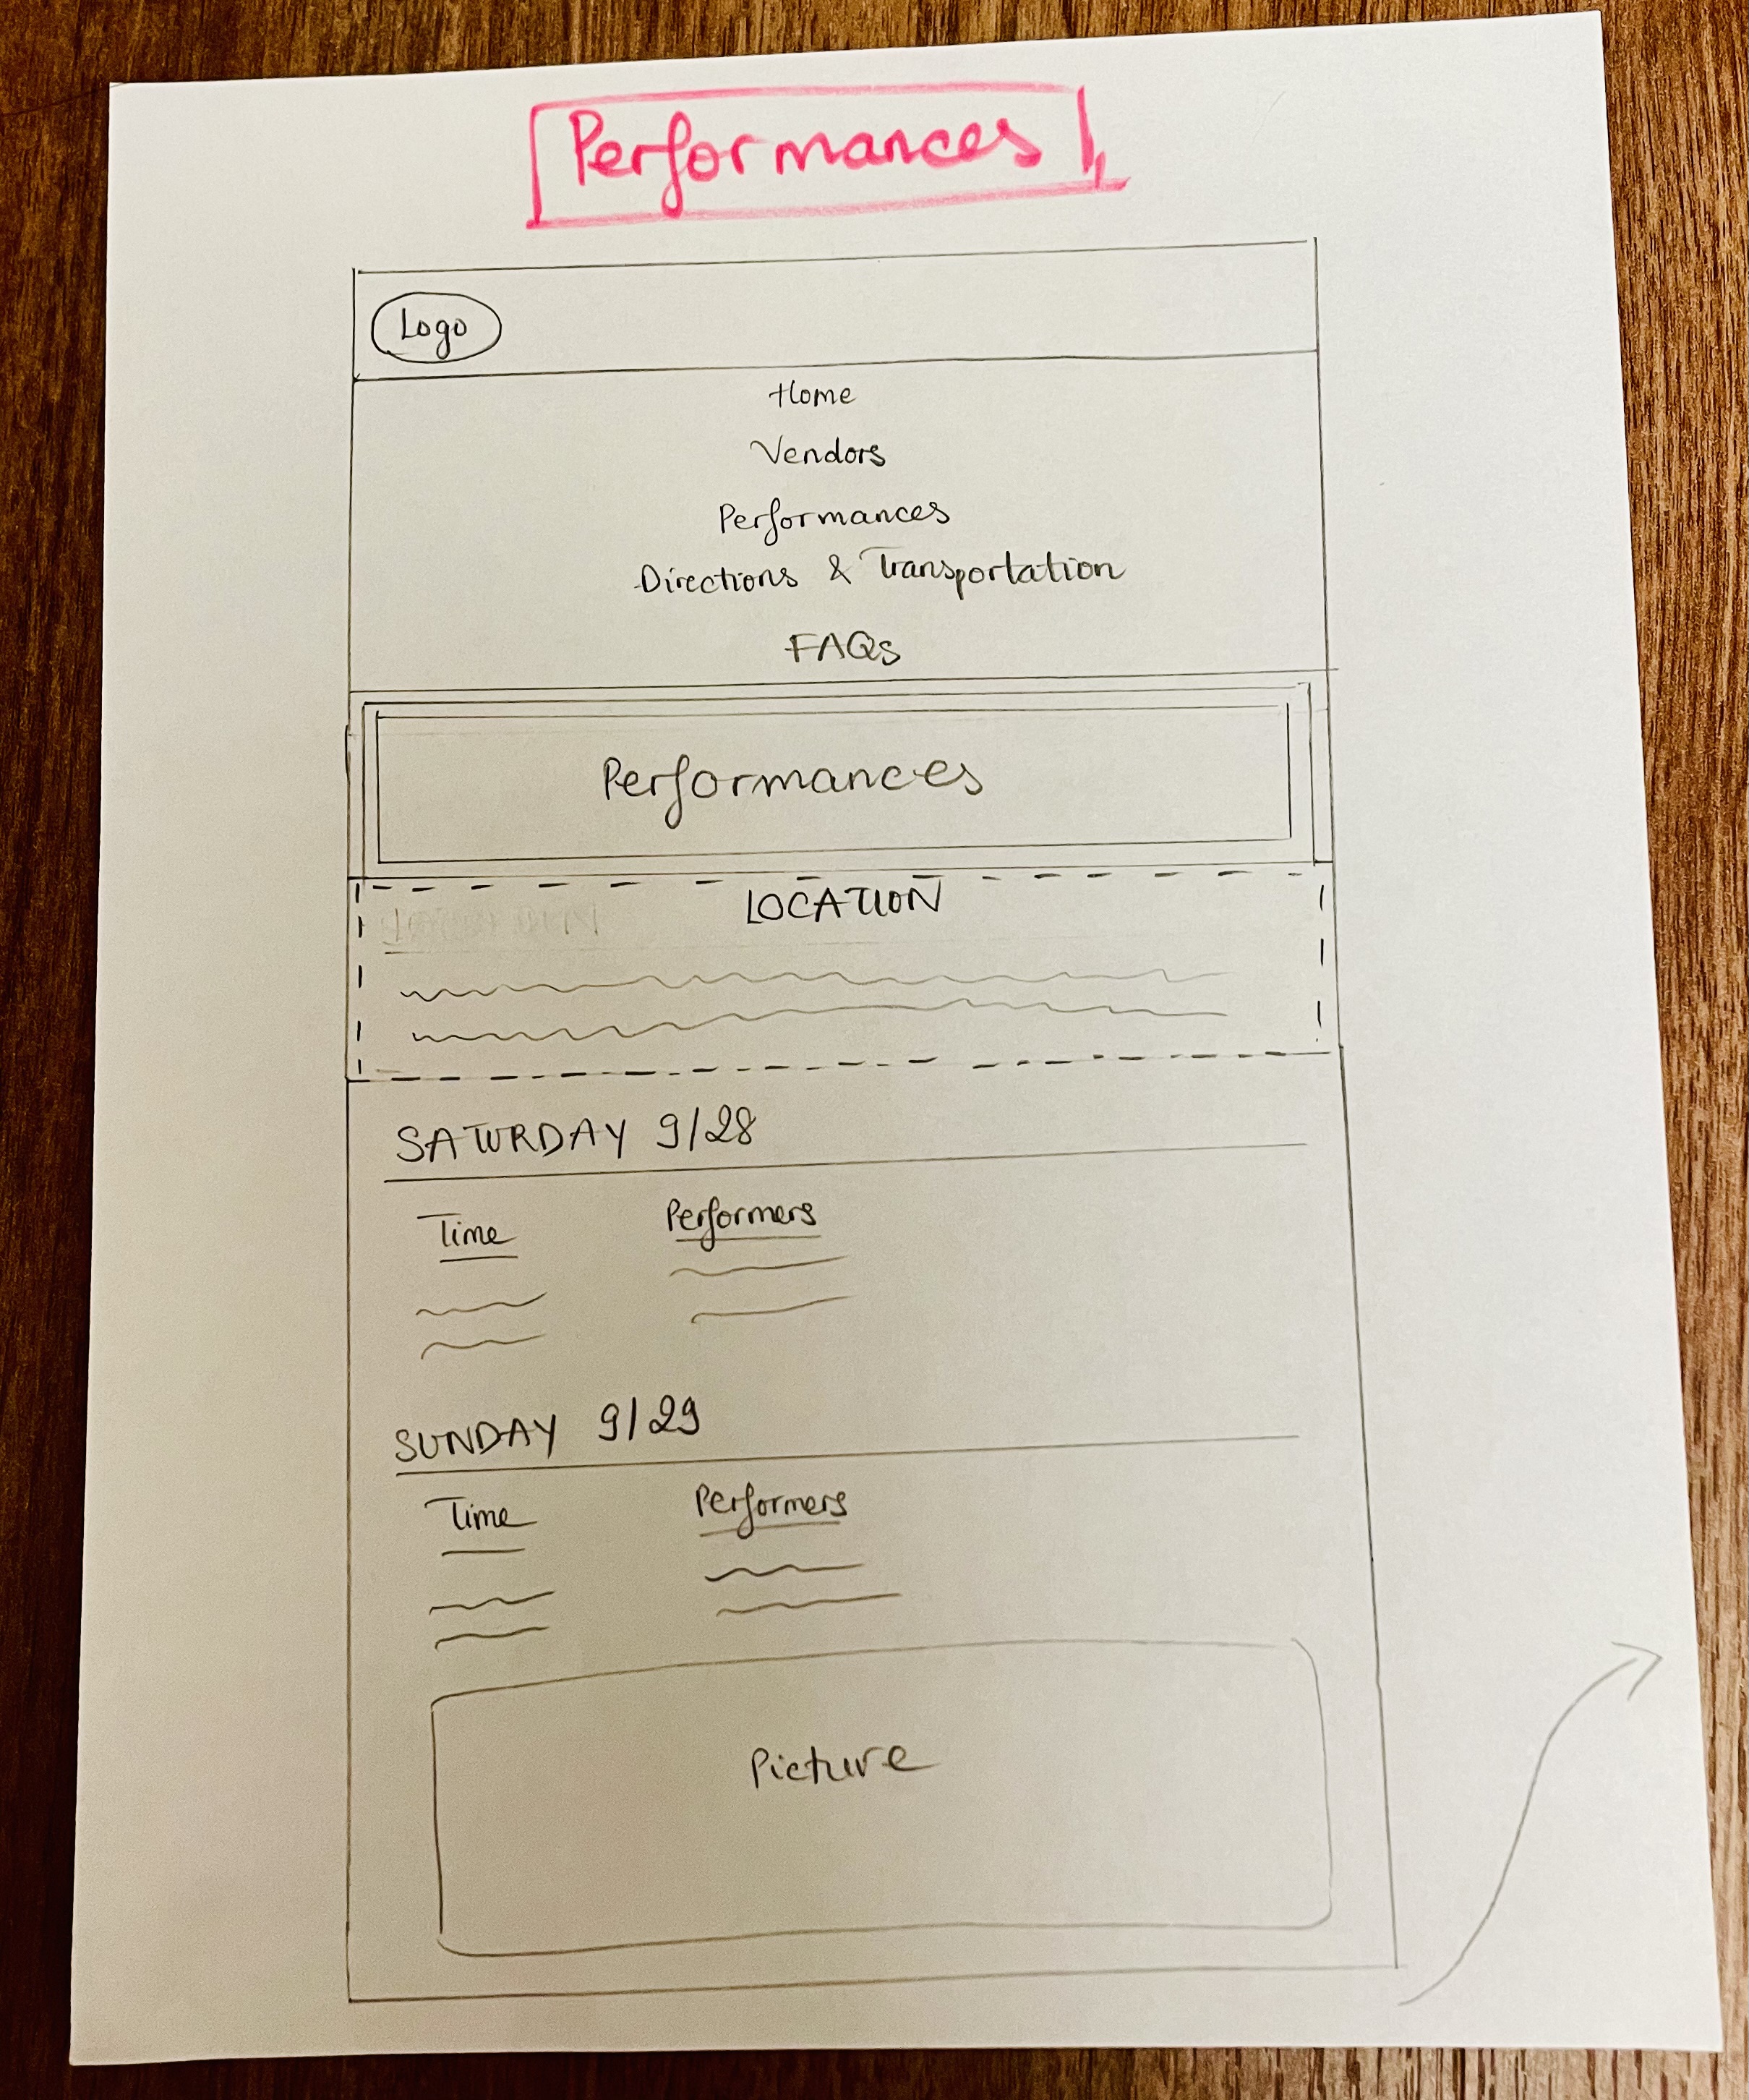 Performances
Logo
Home
Vendors
Performances
Directions & Transportation
FAQs
Performances
LOCATION
SATURDAY 9/28
Time Performers
SUNDAY 9/29
Time Performers
Picture